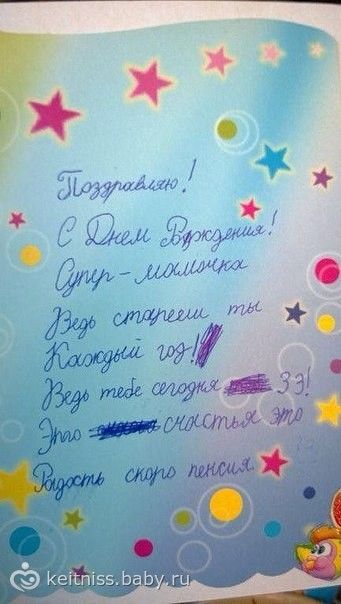 Поздравляю!
С Днем Рождения!
Супер-мамочка
Ведь стареешь ты
Каждый год!
Ведь тебе сегодня 39!
Это счастья это
Радость скоро пенсия.
keitniss.baby.ru